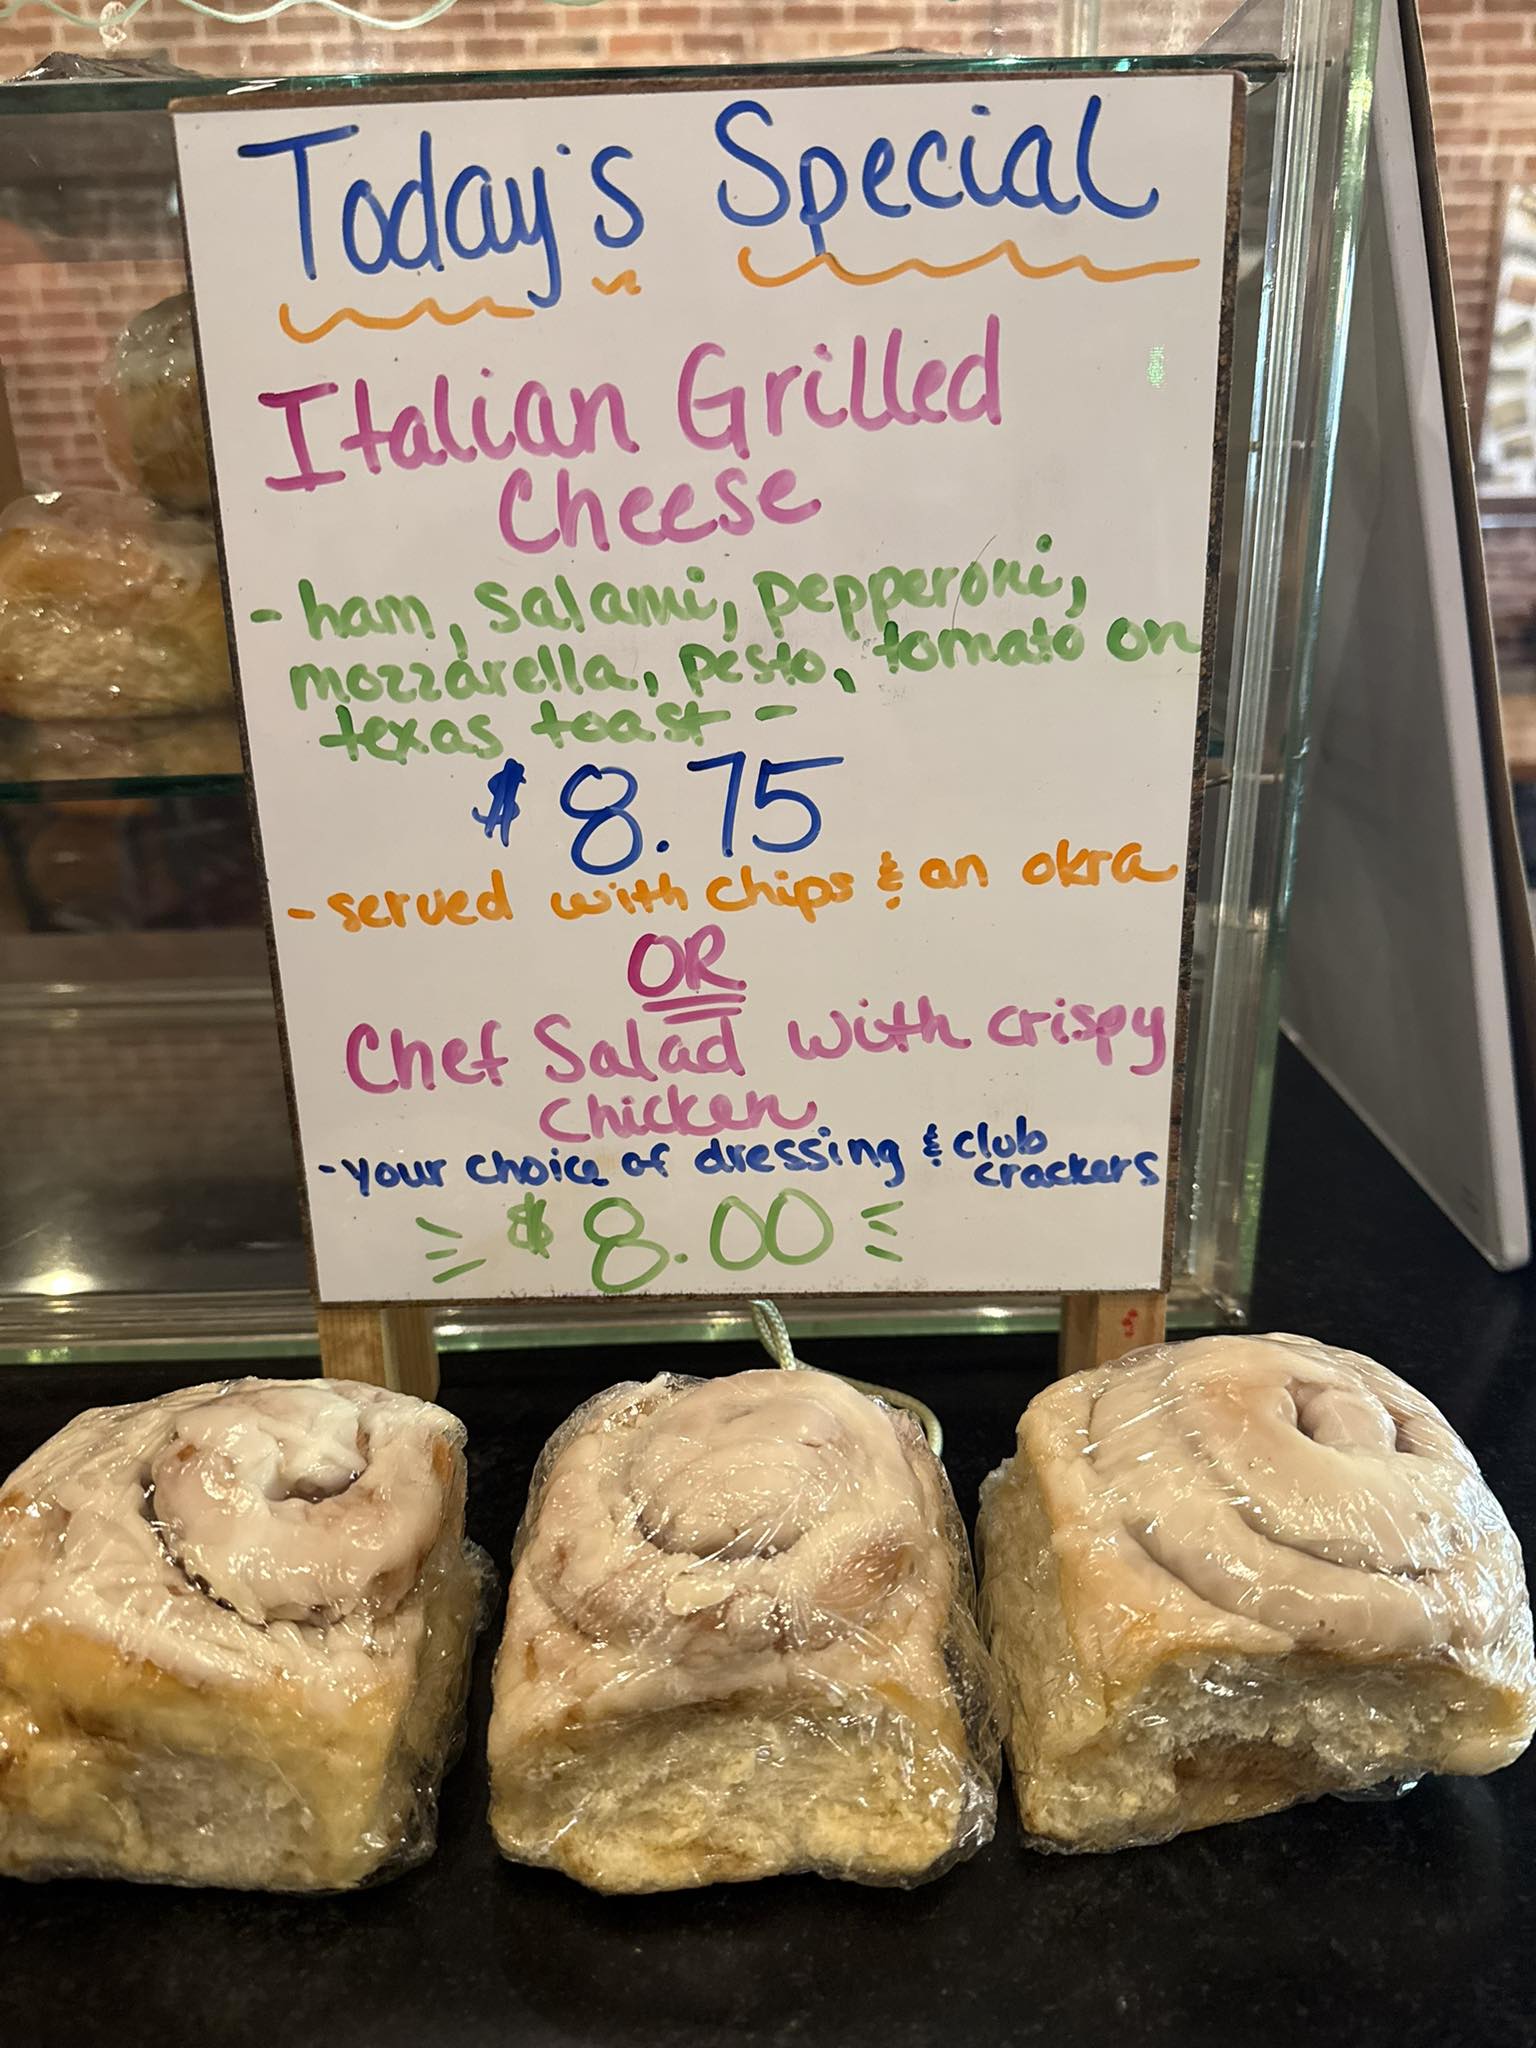 Today's Special
Italian Grilled
Cheese
- ham, salami, pepperoni,
mozzarella, pesto, tomato on
texas toast -
$ 8.75
- served with chips & an okra
OR
Chef Salad with crispy
chicken
- your choice of dressing & club
crackers
$ 8.00